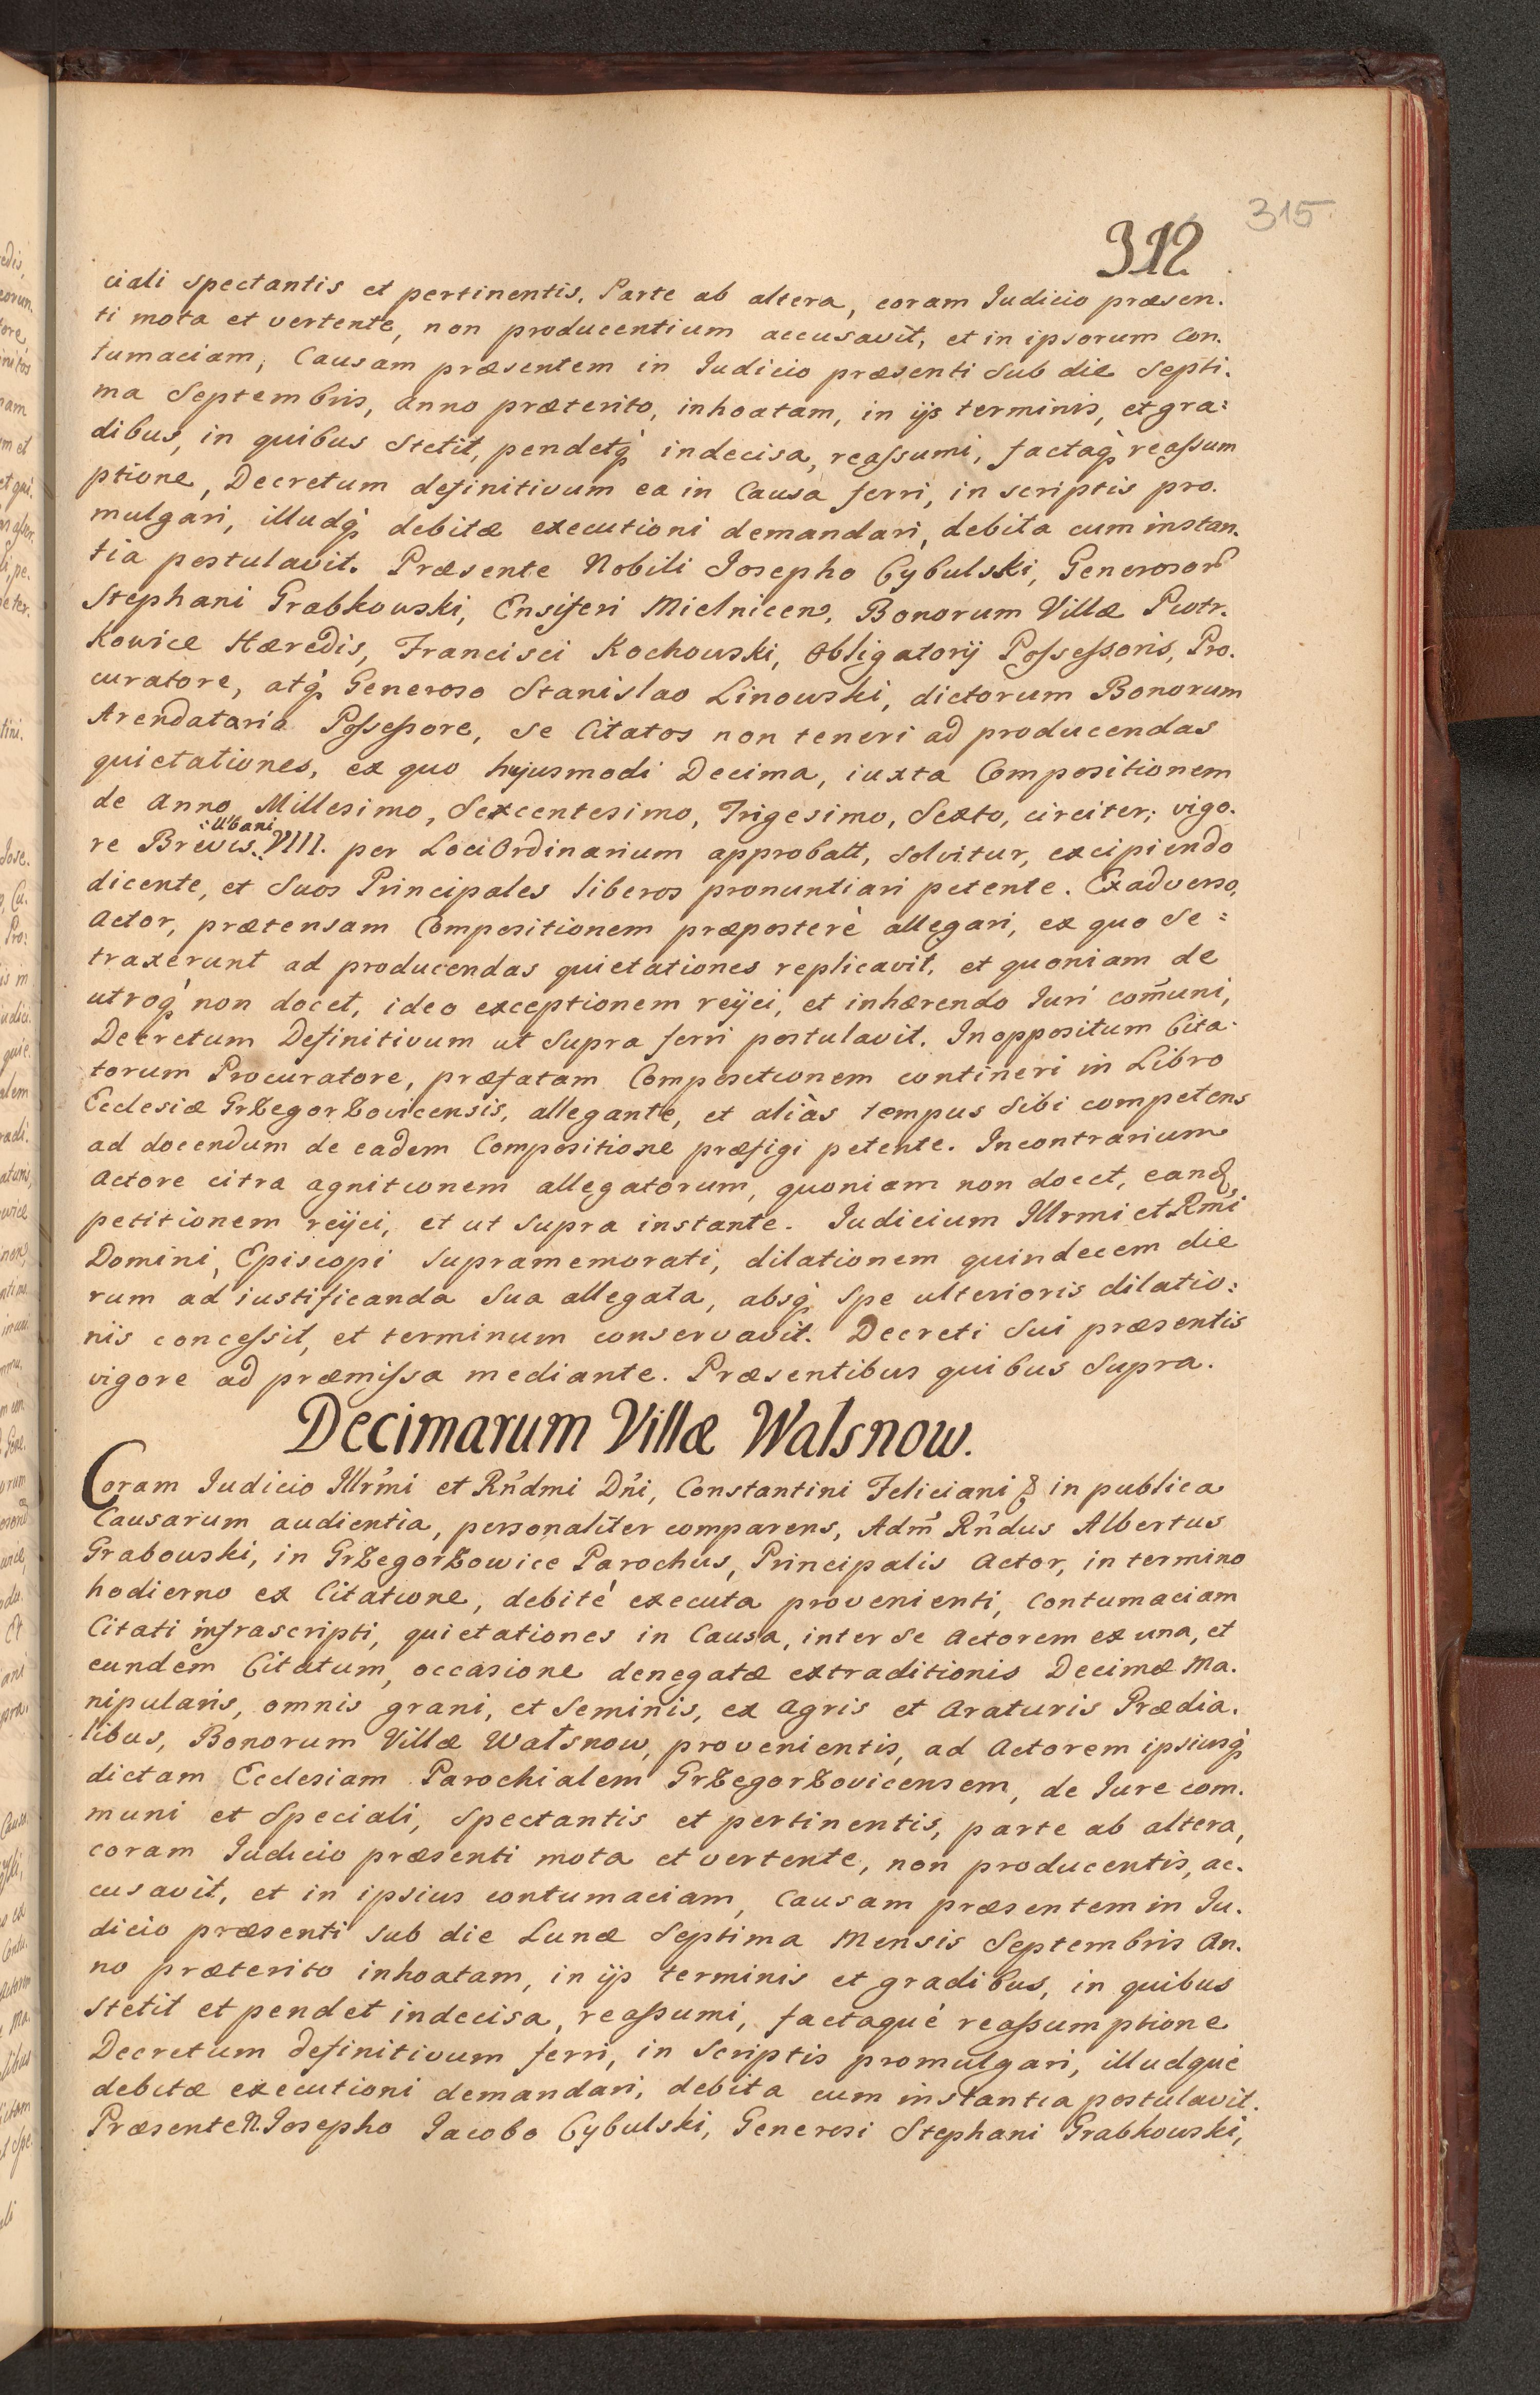 315.
312
ciali spectantis et pertinentis, Parte ab altera, coram Iudicio præsen.
ti mota et vertente, non producentium accusavit, et in ipsorum Con.
tumaciam, Causam præsentem in Iudicio præsenti sub die Septi.
ma Septembris, anno præterito, inhoatam, in ijs terminis, et gra:
dibus, in quibus stetit, pendetq indecisa, reassumi, factaq reassum
ptione, Decretum definitivum ea in Causa ferri, in scriptis pro.
mulgari, illudq debitæ executioni demandari, debita cum instan.
tia postulavit. Præsente Nobili Iosepho Cybulski, Generosor
Stephani Grabkowski, Ensiferi Mielnicen, Bonorum Villæ Piotr.
kowice Hæredis, Francisci Kochowski, Obligatorij Possessoris, Pro.
curatore, atq Generoso Stanislao Linowski, dictorum Bonorum
Arendatario Possessore, se Citatos non teneri ad producendas
quietationes, ex quo hujusmodi Decima, iuxta Compositionem
de Anno Millesimo, Sexcentesimo, Trigesimo, Sexto, circiter, vigo.
:Ubani
re Brevis VIII. per Loci Ordinarium approbatt, solvitur, excipiendo
dicente, et suos Principales liberos pronuntiari petente. Ex adverso,
Actor, prætensam Compositionem præposterè allegari, ex quo se:
traxerunt ad producendas quietationes replicavit, et quoniam de
utroq non docet, ideo exceptionem reijci, et inhærendo Iuri com̃uni,
Decretum Definitivum ut supra ferri postulavit. In oppositum Cita.
torum Procuratore, præfatam Compositionem contineri in Libro
Ecclesiæ Grzegorzovicensis, allegante, et aliàs tempus sibi competens
ad docendum de eadem Compositione præfigi petente. In contrarium
Actore citra agnitionem allegatorum, quoniam non docet, eand
petitionem reijci, et ut supra instante. Iudicium Illrmi et Rmi
Domini, Episcopi supramemorati, dilationem quindecem die
rum ad iustificanda sua allegata, absq spe ulterioris dilatio:
nis concessit, et terminum conservavit. Decreti sui præsentis
vigore ad præmissa mediante. Præsentibus quibus supra.
Decimarum Villæ Walsnow.
Coram Iudicio Illrmi et Rñdmi Dñi, Constantini Feliciani & in publica
Causarum audientia, personaliter comparens, Adm̃ Rñdus Albertus
Grabowski, in Grzegorzowice Parochus, Principalis Actor, in termino
hodierno ex Citatione, debitè executa provenienti, Contumaciam
Citati infrascripti, quietationes in Causa, inter se Actorem ex una, et
eundem Citatum, occasione denegatæ extraditionis Decimæ Ma.
nipularis, omnis grani, et seminis, ex Agris et Araturis Prædia.
libus, Bonorum Villæ Walsnow, provenientis, ad Actorem ipsiusq
dictam Ecclesiam Parochialem Grzegorzovicensem, de Iure com.
muni et Speciali, spectantis et pertinentis, parte ab altera,
coram Iudicio præsenti mota et vertente, non producentis, ac.
cusavit, et in ipsius contumaciam, Causam præsentem in Iu.
dicio præsenti sub die Lunæ Septima Mensis Septembris An.
no præterito inhoatam, in ijs terminis et gradibus, in quibus
stetit et pendet indecisa, reassumi, factaquè reassumptione
Decretum definitivum ferri, in scriptis promulgari, illudquè
debitæ executioni demandari, debita cum instantia postulavit.
Præsente N. Iosepho Iacobo Cybulski, Generosi Stephani Grabkowski,